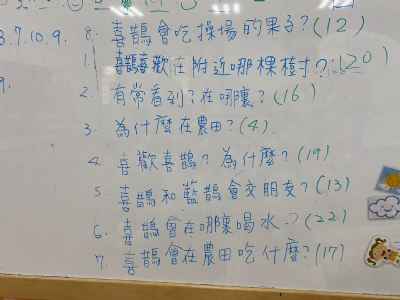 3.7.10.9. 8. 喜鵲會吃操場的果子?(12)
1. 喜鵲喜歡在附近哪棵樹?(20)
9.
2. 有常看到?在哪裏?(16)
3. 為什麼在農田?(4)
4. 喜歡喜鵲?為什麼?(19)
5 喜鵲和藍鵲會交朋友?(13)
6. 喜鵲會在哪裏喝水?(22)
7. 喜鵲會在農田吃什麼?(17)